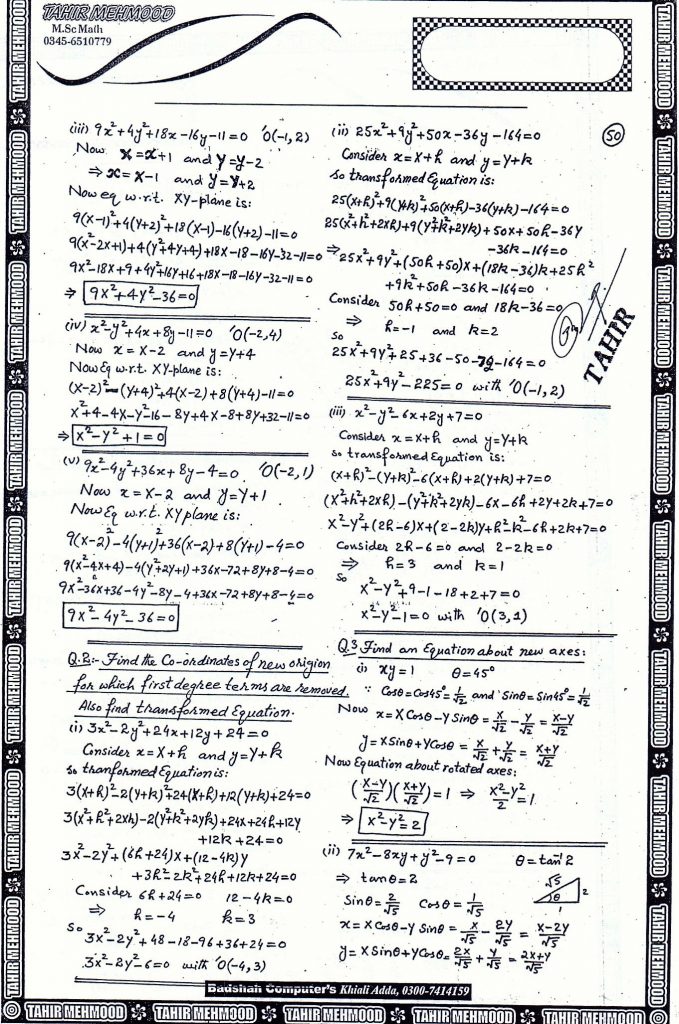 TAHIR MEHMOOD
M.Sc Math
0345-6510779
(iii) 9x²+4y²+18x-16y-11=0 'O(-1,2)
Now X=x+1 and Y=y-2
⇒ x=X-1 and y=Y+2
Now eq w.r.t. XY-plane is:
9(X-1)²+4(Y+2)²+18(X-1)-16(Y+2)-11=0
9(X²-2X+1)+4(Y²+4Y+4)+18X-18-16Y-32-11=0
9X²-18X+9+4Y²+16Y+16+18X-18-16Y-32-11=0
⇒ 9X²+4Y²-36=0
(iv) x²-y²+4x+8y-11=0 'O(-2,4)
Now x=X-2 and y=Y+4
Now Eq w.r.t. XY-plane is:
(X-2)²-(Y+4)²+4(X-2)+8(Y+4)-11=0
X²+4-4X-Y²-16-8Y+4X-8+8Y+32-11=0
⇒ X²-Y²+1=0
(v) 9x²-4y²+36x+8y-4=0 'O(-2,1)
Now x=X-2 and y=Y+1
Now Eq w.r.t. XY plane is:
9(X-2)²-4(Y+1)²+36(X-2)+8(Y+1)-4=0
9(X²-4X+4)-4(Y²+2Y+1)+36X-72+8Y+8-4=0
9X²-36X+36-4Y²-8Y-4+36X-72+8Y+8-4=0
9X²-4Y²-36=0
Q.2:- Find the Co-ordinates of new origin
for which first degree terms are removed.
Also find transformed Equation.
(i) 3x²-2y²+24x+12y+24=0
Consider x=X+h and y=Y+k
so tranformed Equation is:
3(X+h)²-2(Y+k)²+24(X+h)+12(Y+k)+24=0
3(X²+h²+2Xh)-2(Y²+k²+2Yk)+24X+24h+12Y
+12k+24=0
3X²-2Y²+(6h+24)X+(12-4k)Y
+3h²-2k²+24h+12k+24=0
Consider 6h+24=0 12-4k=0
⇒ h=-4 k=3
So
3X²-2Y²+48-18-96+36+24=0
3X²-2Y²-6=0 with 'O(-4,3)
(ii) 25x²+9y²+50x-36y-164=0
50
Consider x=X+h and y=Y+k
so transformed Equation is:
25(X+h)²+9(Y+k)²+50(X+h)-36(Y+k)-164=0
25(X²+h²+2Xh)+9(Y²+k²+2Yk)+50X+50h-36Y
-36k-164=0
⇒ 25X²+9Y²+(50h+50)X+(18k-36)k+25h²
+9k²+50h-36k-164=0
Consider 50h+50=0 and 18k-36=0
⇒ h=-1 and k=2
So
25X²+9Y²+25+36-50-72-164=0
25X²+9Y²-225=0 with 'O(-1,2)
TAHIR
(iii) x²-y²-6x+2y+7=0
Consider x=X+h and y=Y+k
so transformed Equation is:
(X+h)²-(Y+k)²-6(X+h)+2(Y+k)+7=0
(X²+h²+2Xh)-(Y²+k²+2Yk)-6X-6h+2Y+2k+7=0
X²-Y²+(2h-6)X+(2-2k)Y+h²-k²-6h+2k+7=0
Consider 2h-6=0 and 2-2k=0
⇒ h=3 and k=1
So
X²-Y²+9-1-18+2+7=0
X²-Y²-1=0 with 'O(3,1)
Q.3 Find an Equation about new axes:
(i) xy=1 θ=45°
∵ Cosθ=Cos45°=1/√2 and Sinθ=Sin45°=1/√2
Now x=XCosθ-YSinθ = X/√2 - Y/√2 = X-Y/√2
y=XSinθ+YCosθ = X/√2 + Y/√2 = X+Y/√2
Now Equation about rotated axes:
(X-Y/√2)(X+Y/√2)=1 ⇒ X²-Y²/2=1
⇒ X²-Y²=2
(ii) 7x²-8xy+y²-9=0 θ=tan⁻¹2
⇒ tanθ=2
√5 2 θ 1
Sinθ=2/√5 Cosθ=1/√5
x=XCosθ-YSinθ = X/√5 - 2Y/√5 = X-2Y/√5
y=XSinθ+YCosθ = 2X/√5 + Y/√5 = 2X+Y/√5
Badshah Computer's Khiali Adda, 0300-7414159
TAHIR MEHMOOD TAHIR MEHMOOD TAHIR MEHMOOD TAHIR MEHMOOD TAHIR MEHMOOD